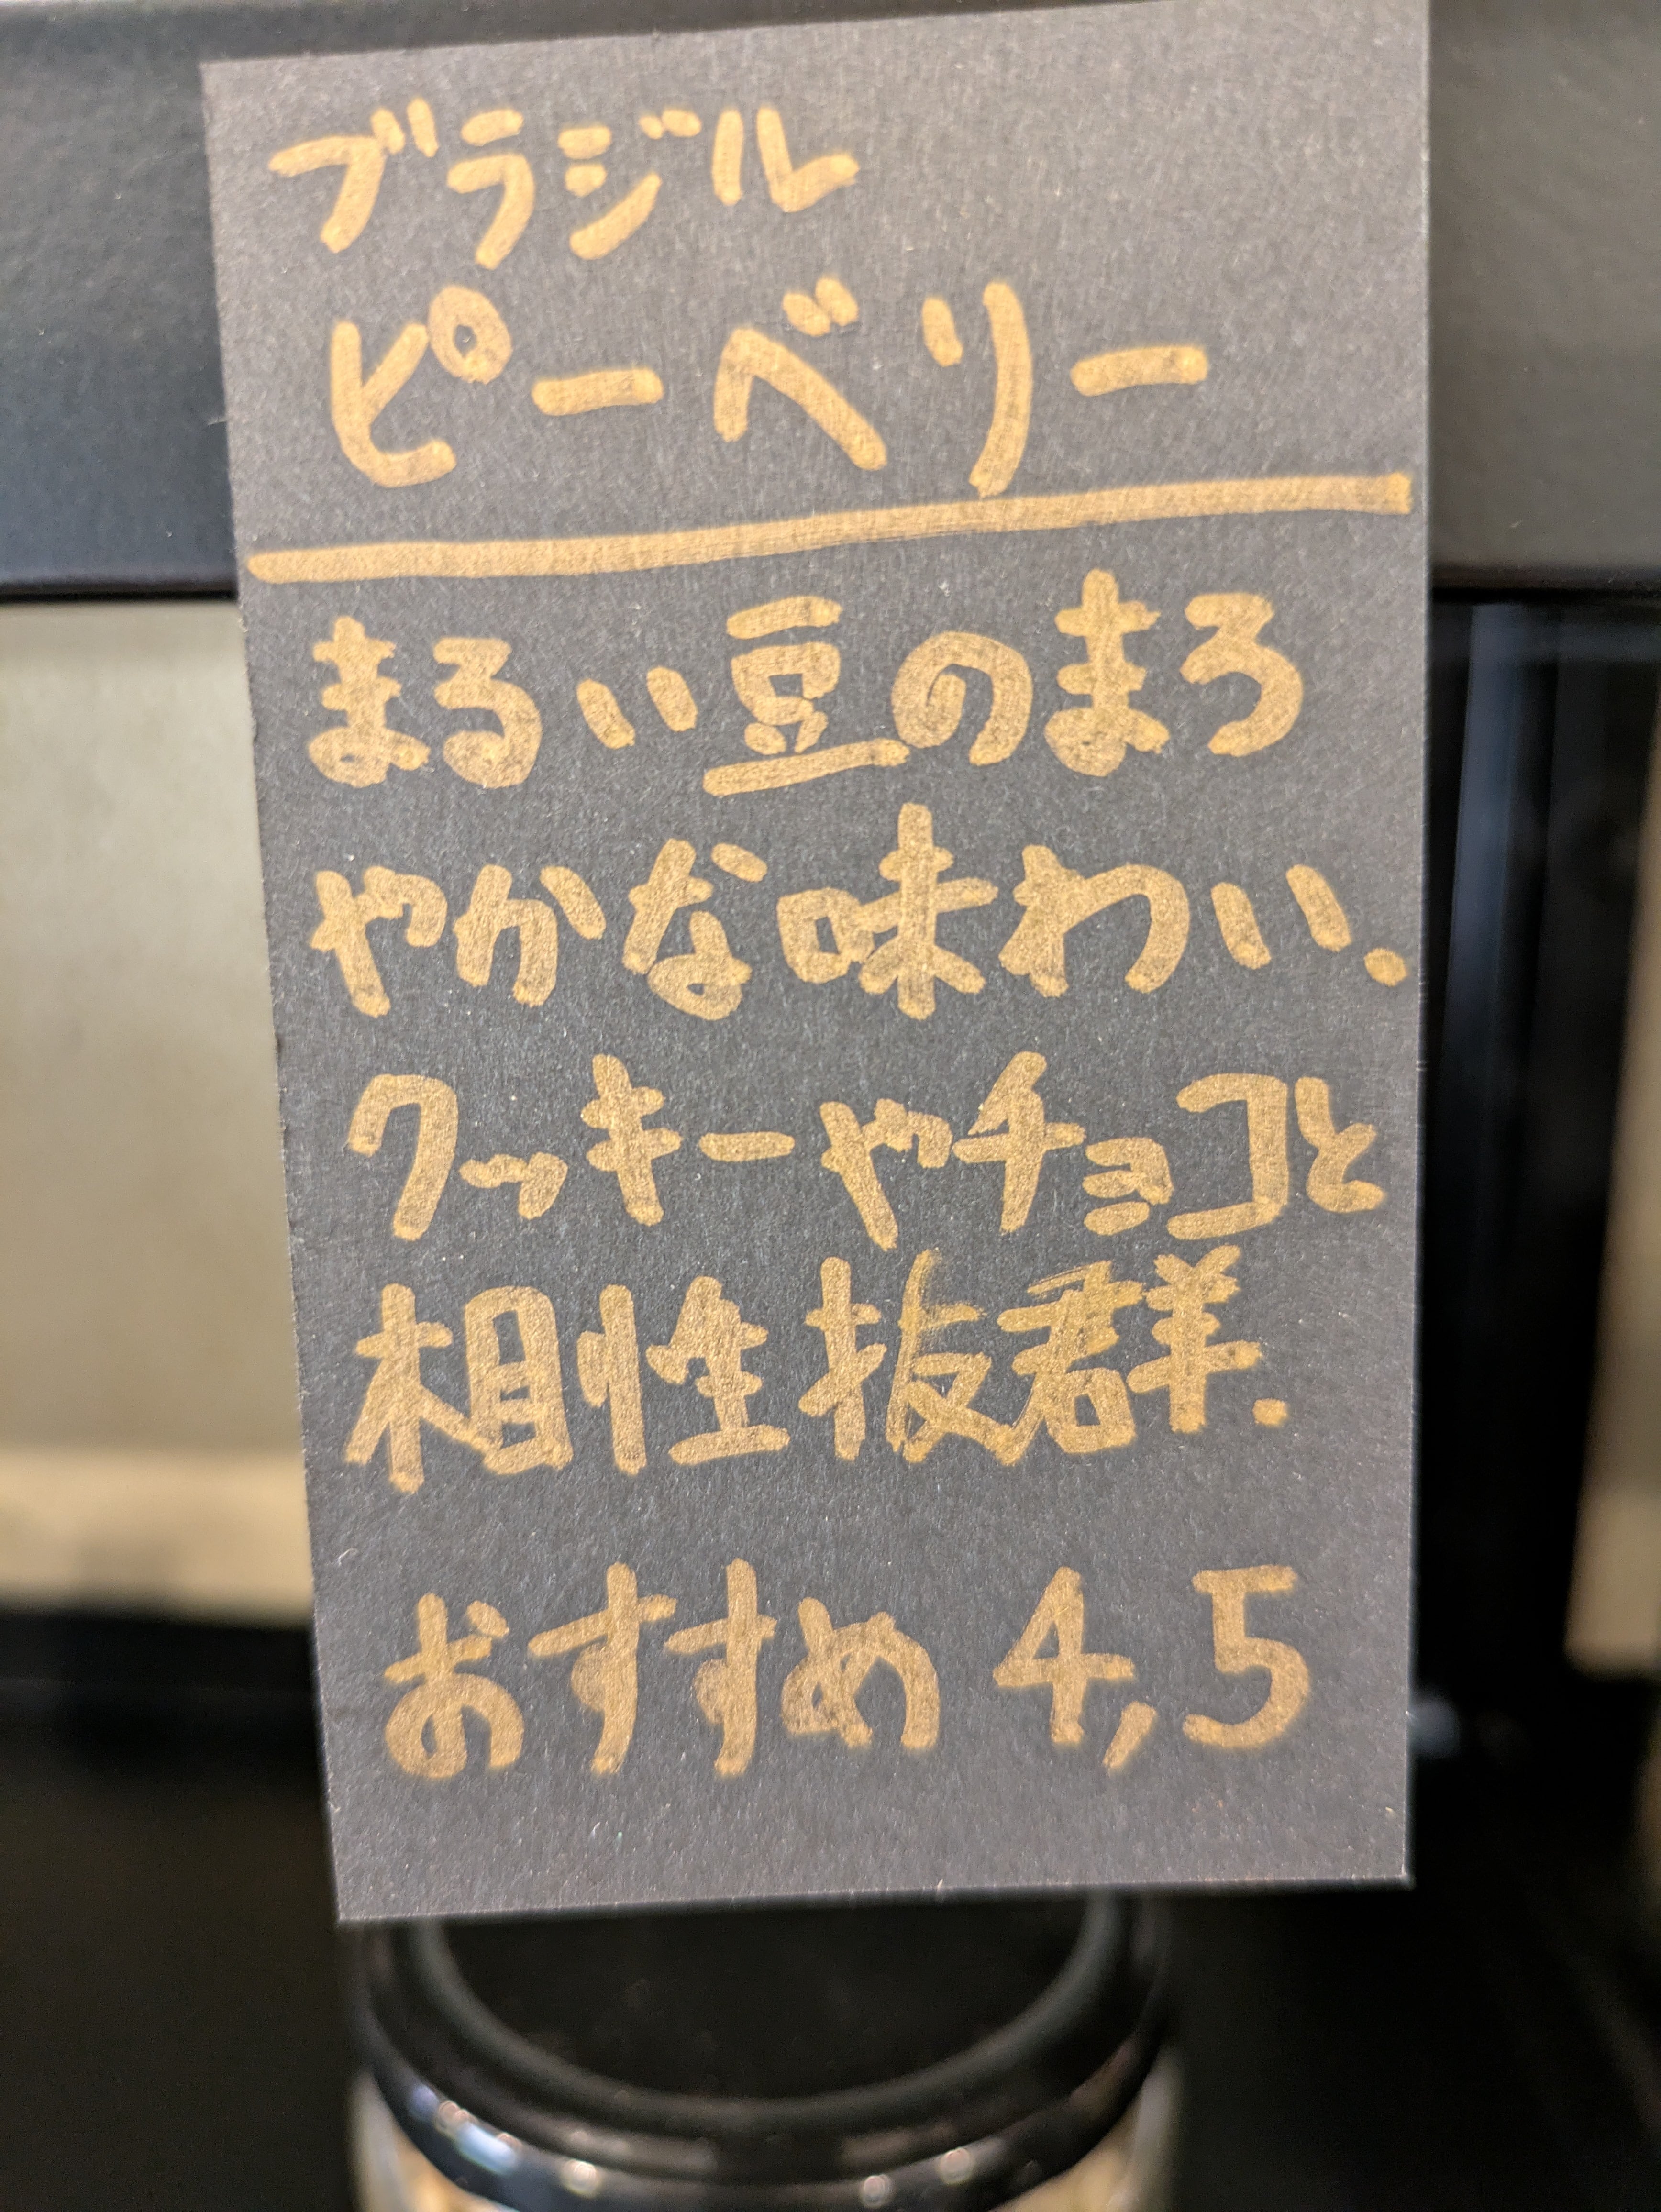 ブラジル
ピーベリー
まるい豆のまろ
やかな味わい.
クッキーやチョコと
相性抜群.
おすすめ 4,5